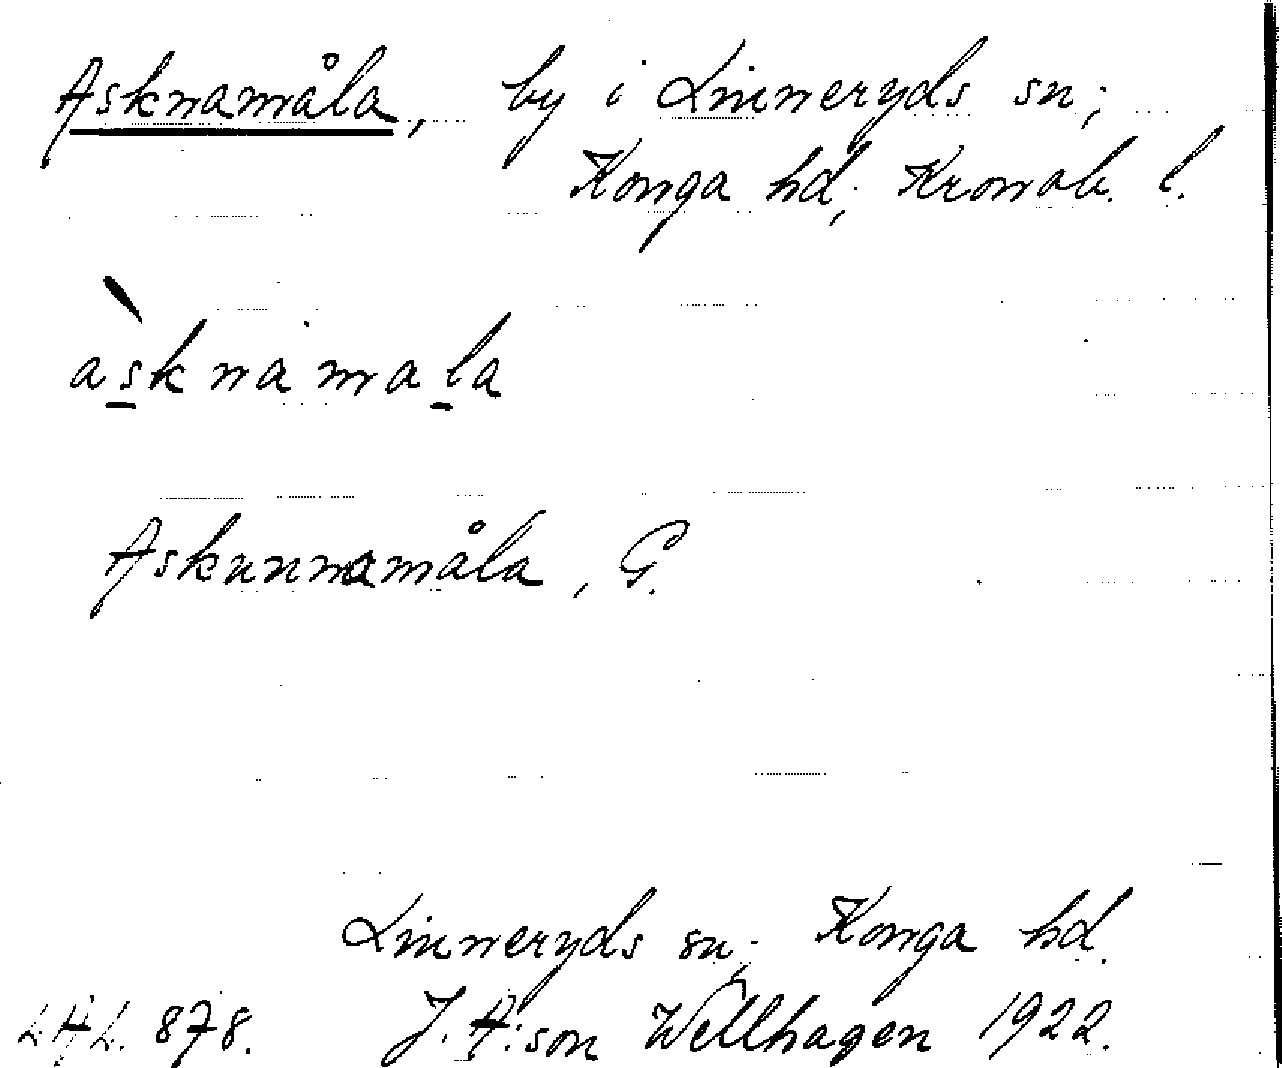 Asknamåla, by i Linneryds sn;
Konga hd; Kronob. l.
àsknamala
Askunnamåla, G.
Linneryds sn; Konga hd.
LAL. 878. J. A:son Wellhagen 1922.